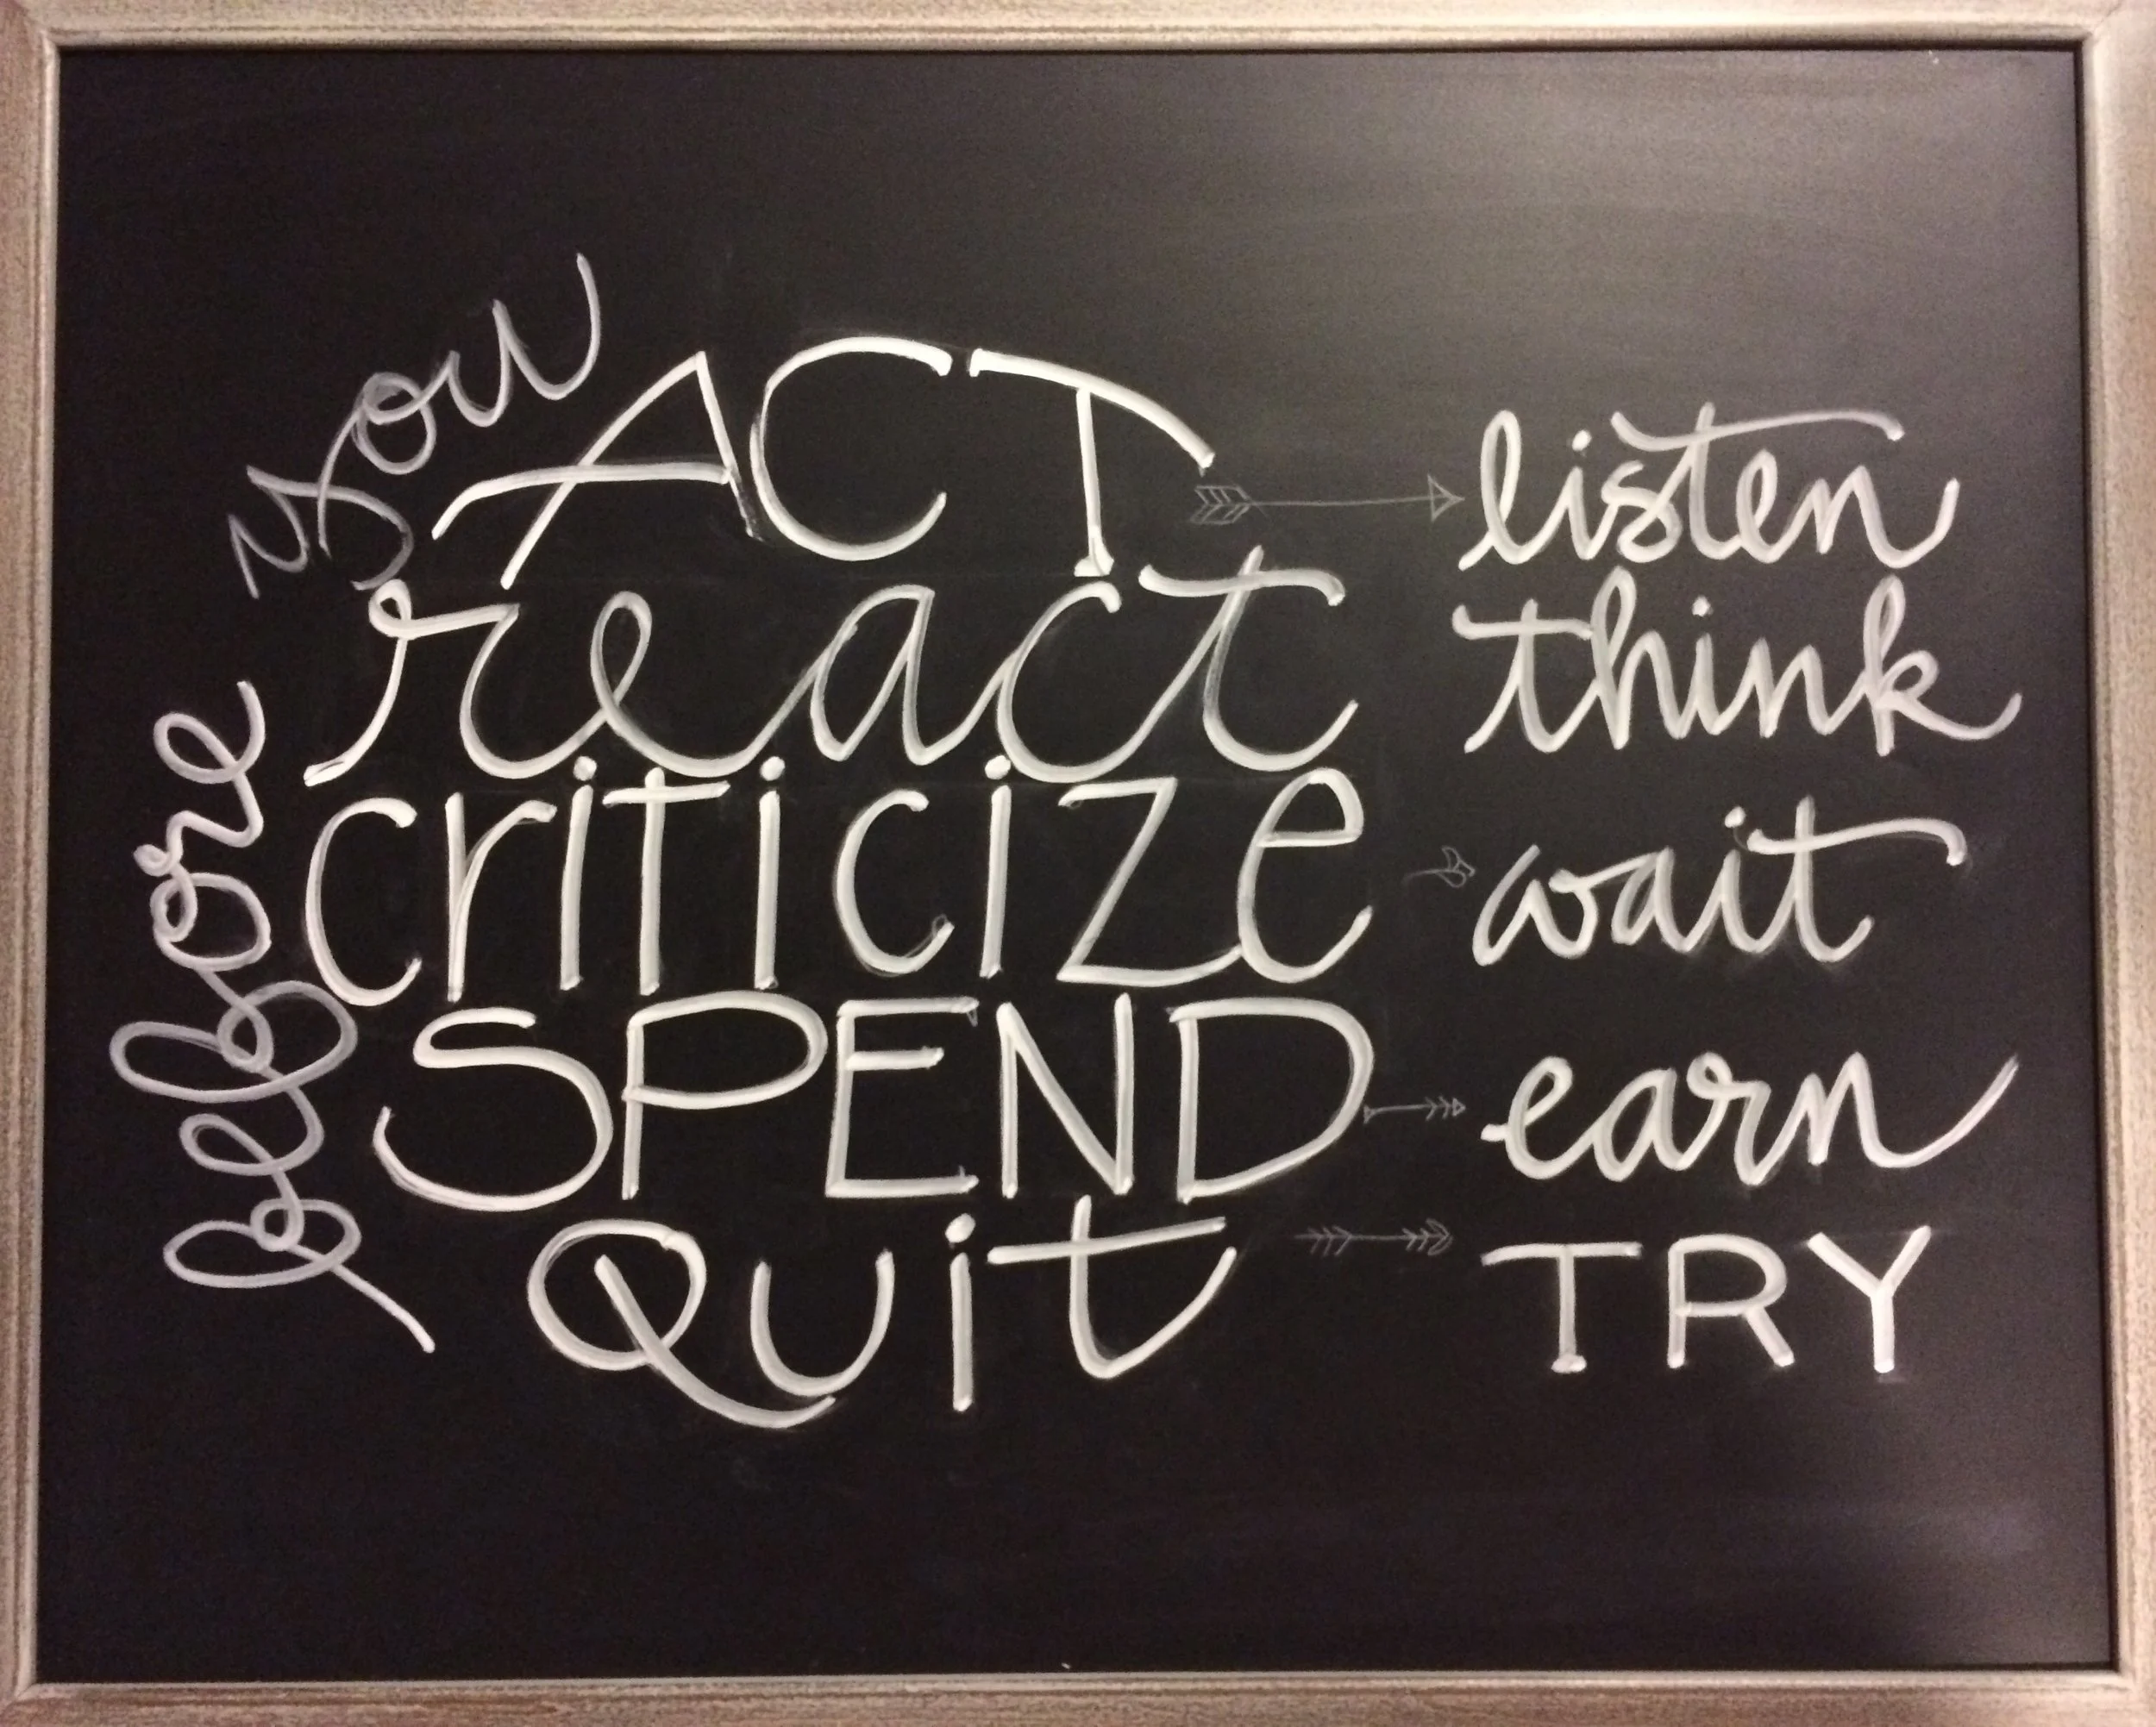 before you
ACT listen
react think
criticize wait
SPEND earn
Quit TRY